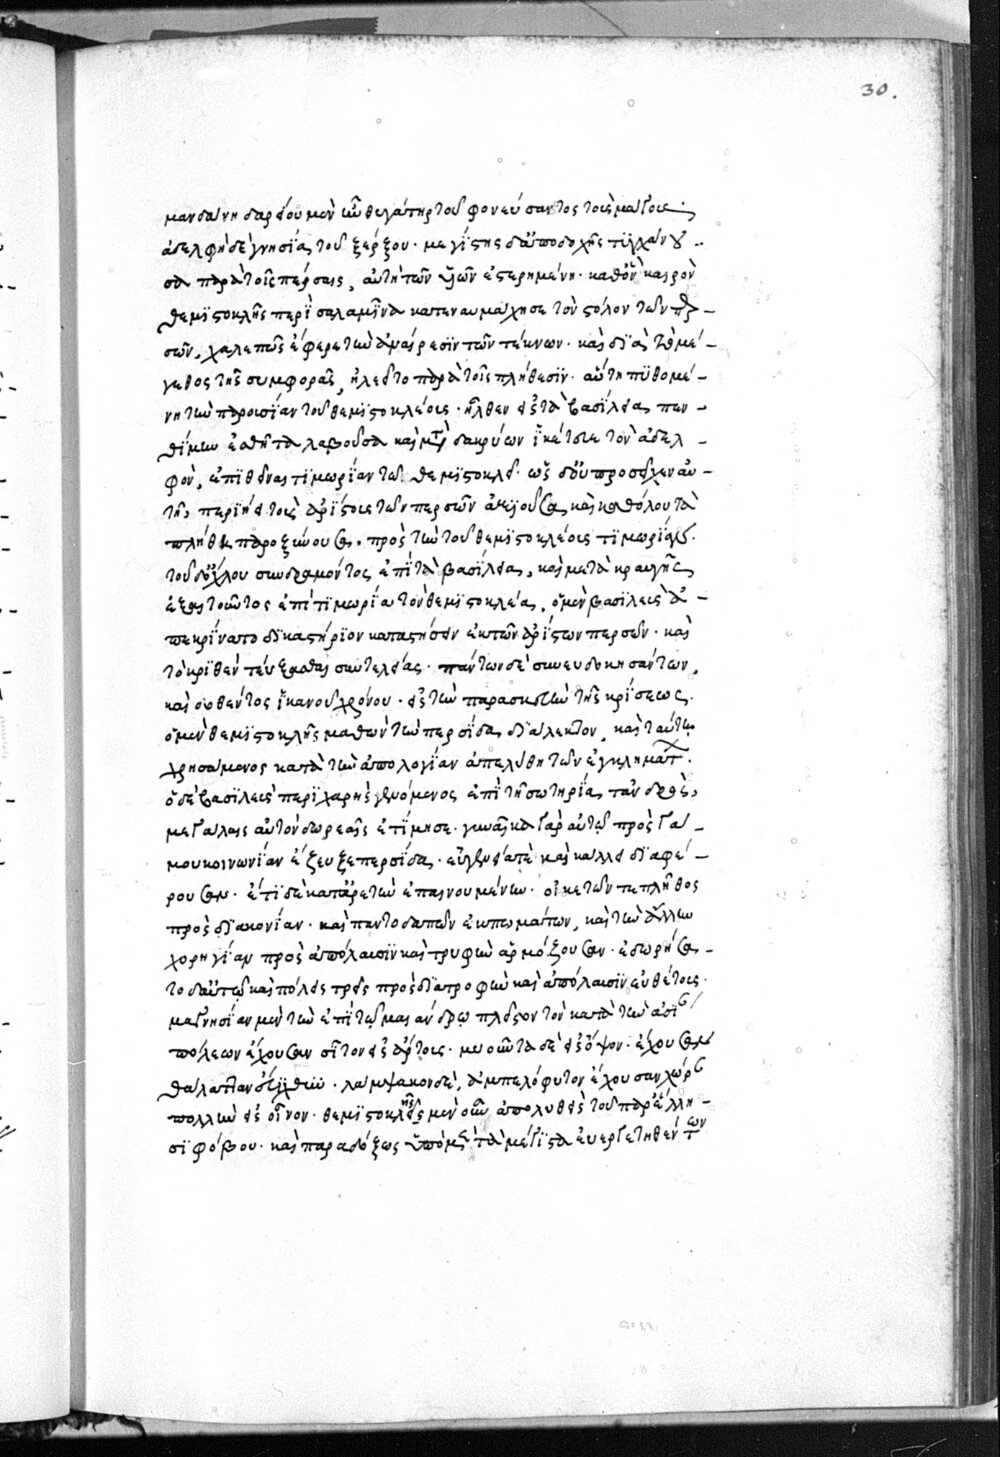 30.
μανδάνη δαρείου μὲν ἦν θυγάτηρ τοῦ φονεύσαντος τοὺς μάγους·
ἀδελφὴ δὲ γνησία τοῦ ξέρξου· μεγίστης δ' ἀποδοχῆς τυγχάνου-
σα παρὰ τοῖς πέρσαις, αὕτη τῶν υἱῶν ἐστερημένη· καθ' ὃν καιρὸν
θεμιστοκλῆς περὶ σαλαμῖνα κατεναυμάχησε τὸν στόλον τῶν περ-
σῶν, χαλεπῶς ἔφερε τὴν ἀναίρεσιν τῶν τέκνων· καὶ διὰ τὸ μέ-
γεθος τῆς συμφορᾶς, ἠλεεῖτο παρὰ τοῖς πλήθεσιν· αὕτη πυθομέ-
νη τὴν παρουσίαν τοῦ θεμιστοκλέους· ἦλθεν εἰς τὰ βασίλεια· πεν-
θίμην ἐσθῆτα λαβοῦσα καὶ μετὰ δακρύων ἱκέτευε τὸν ἀδελ-
φὸν, ἐπιθεῖναι τιμωρίαν τῷ θεμιστοκλεῖ· ὡς δ' οὐ προσεῖχεν αὐ-
τῇ, περιῄει τοὺς ἀρίστους τῶν περσῶν ἀξιοῦσα, καὶ καθόλου τὰ
πλήθη παροξύνουσα πρὸς τὴν τοῦ θεμιστοκλέους τιμωρίαν·
τοῦ δ' ὄχλου συνδραμόντος ἐπὶ τὰ βασίλεια, καὶ μετὰ κραυγῆς
ἐξαιτοῦντος ἐπὶ τιμωρίᾳ τὸν θεμιστοκλέα, ὁ μὲν βασιλεὺς ἀ-
πεκρίνατο δικαστήριον καταστήσειν ἐκ τῶν ἀρίστων περσῶν· καὶ
τὸ κριθὲν τεύξεσθαι συντελείας· πάντων δὲ συνευδοκησάντων,
καὶ δοθέντος ἱκανοῦ χρόνου· εἰς τὴν παρασκευὴν τῆς κρίσεως·
ὁ μὲν θεμιστοκλῆς μαθὼν τὴν περσίδα διάλεκτον, καὶ ταύτῃ
χρησάμενος κατὰ τὴν ἀπολογίαν ἀπελύθη τῶν ἐγκλημάτ·
ὁ δὲ βασιλεὺς περιχαρὴς γενόμενος ἐπὶ τῇ σωτηρίᾳ τἀνδρὸς,
μεγάλαις αὐτὸν δωρεαῖς ἐτίμησε· γυναῖκα γὰρ αὐτῷ πρὸς γά-
μου κοινωνίαν ἔζευξε περσίδα· εὐγενείᾳ τε καὶ κάλλει διαφέ-
ρουσαν· ἔτι δὲ κατ' ἀρετὴν ἐπαινουμένην· οἰκετῶν τε πλῆθος
πρὸς διακονίαν· καὶ παντοδαπῶν ἐκπωμάτων, καὶ τὴν ἄλλην
χορηγίαν πρὸς ἀπόλαυσιν καὶ τρυφὴν ἁρμόζουσαν· ἐδωρήσα-
το δ' αὐτῷ καὶ πόλεις τρεῖς πρὸς διατροφὴν καὶ ἀπόλαυσιν εὐθέτους·
μαγνησίαν μὲν τὴν ἐπὶ τῷ μαιάνδρῳ πλεῖστον τὸν κατὰ τὴν ἀσί
πόλεων ἔχουσαν σῖτον εἰς ἄρτους· μυοῦντα δὲ εἰς ὄψον· ἔχουσαν
θάλατταν εὔιχθυν· λάμψακον δὲ, ἀμπελόφυτον ἔχουσαν χώρ
πολλὴν εἰς οἶνον· θεμιστοκλῆς μὲν οὖν ἀπολυθεὶς τοῦ παρ' ἕλλη-
σι φόβου· καὶ παραδόξως ὑπὸ μὲν τὰ μέγιστα εὐεργετηθέντων